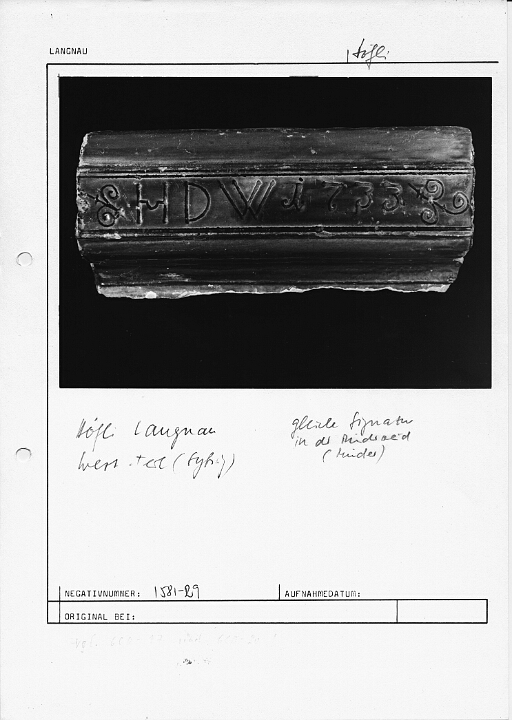 LANGNAU
Höfli
HDW 1733
Höfli Langnau
West-Teil (Gysin)
gleiche Signatur
in der
NEGATIVNUMMER: 1581-29
AUFNAHMEDATUM:
ORIGINAL BEI: